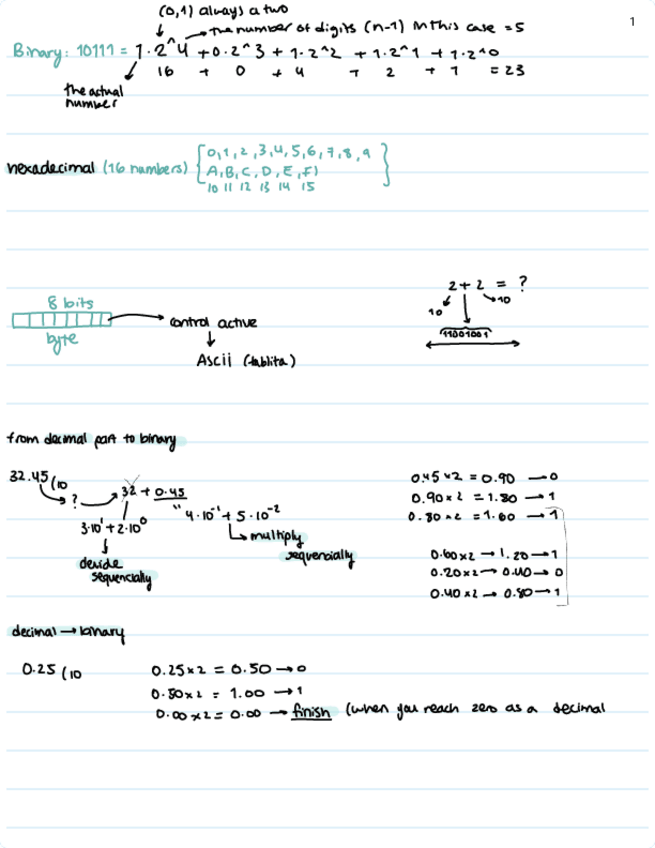 (0,1) always a two
the number of digits (n-1) in this case = 5
1
Binary: 10111 = 1·2^4 + 0·2^3 + 1·2^2 + 1·2^1 + 1·2^0
16 + 0 + 4 + 2 + 1 = 23
the actual
number
hexadecimal (16 numbers) { 0,1,2,3,4,5,6,7,8,9
A,B,C,D,E,F) }
10 11 12 13 14 15
8 bits
byte
control active
Ascii (tablita)
2 + 2 = ?
10 10
11001001
from decimal part to binary
32.45(10
? 32 + 0.45
3·10^1 + 2·10^0
" 4·10^-1 + 5·10^-2
multiply
sequencially
devide
sequencially
0.45 x 2 = 0.90 → 0
0.90 x 2 = 1.80 → 1
0.80 x 2 = 1.60 → 1
0.60 x 2 → 1.20 → 1
0.20 x 2 → 0.40 → 0
0.40 x 2 → 0.80 → 1
decimal → binary
0.25 (10
0.25 x 2 = 0.50 → 0
0.50 x 2 = 1.00 → 1
0.00 x 2 = 0.00 → finish (when you reach zero as a decimal